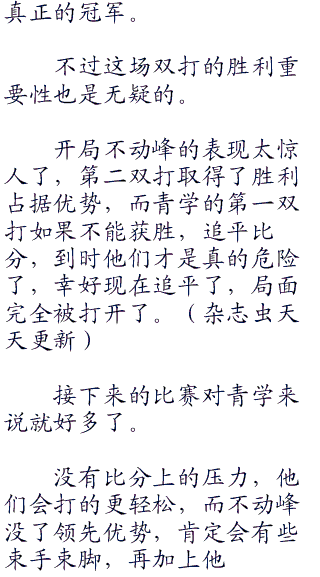 真正的冠军。
不过这场双打的胜利重
要性也是无疑的。
开局不动峰的表现太惊
人了，第二双打取得了胜利
占据优势，而青学的第一双
打如果不能获胜，追平比
分，到时他们才是真的危险
了，幸好现在追平了，局面
完全被打开了。（杂志虫天
天更新）
接下来的比赛对青学来
说就好多了。
没有比分上的压力，他
们会打的更轻松，而不动峰
没了领先优势，肯定会有些
束手束脚，再加上他